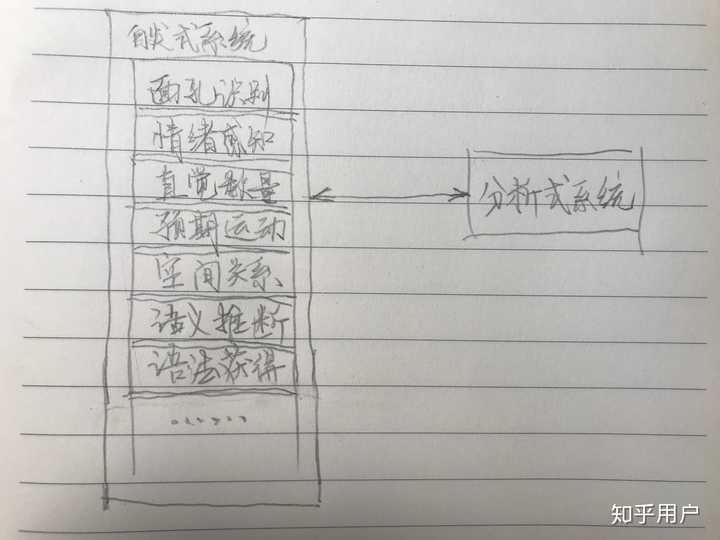 自发式系统
面孔识别
情绪感知
直觉数量
预期运动
空间关系
语义推断
语法获得
.......
分析式系统
知乎用户